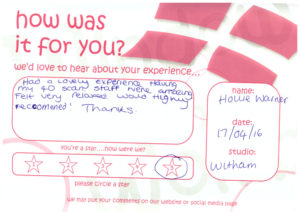 how was
it for you?
we'd love to hear about your experience...
Had a lovely experience having
my 4D scan! Staff were amazing
Felt very relaxed would highly
reccomened! Thanks.
You're a star....how were we?
please circle a star
we may put your comments on our website or social media page
name:
Hollie Warner
date:
17/04/16
studio:
Witham